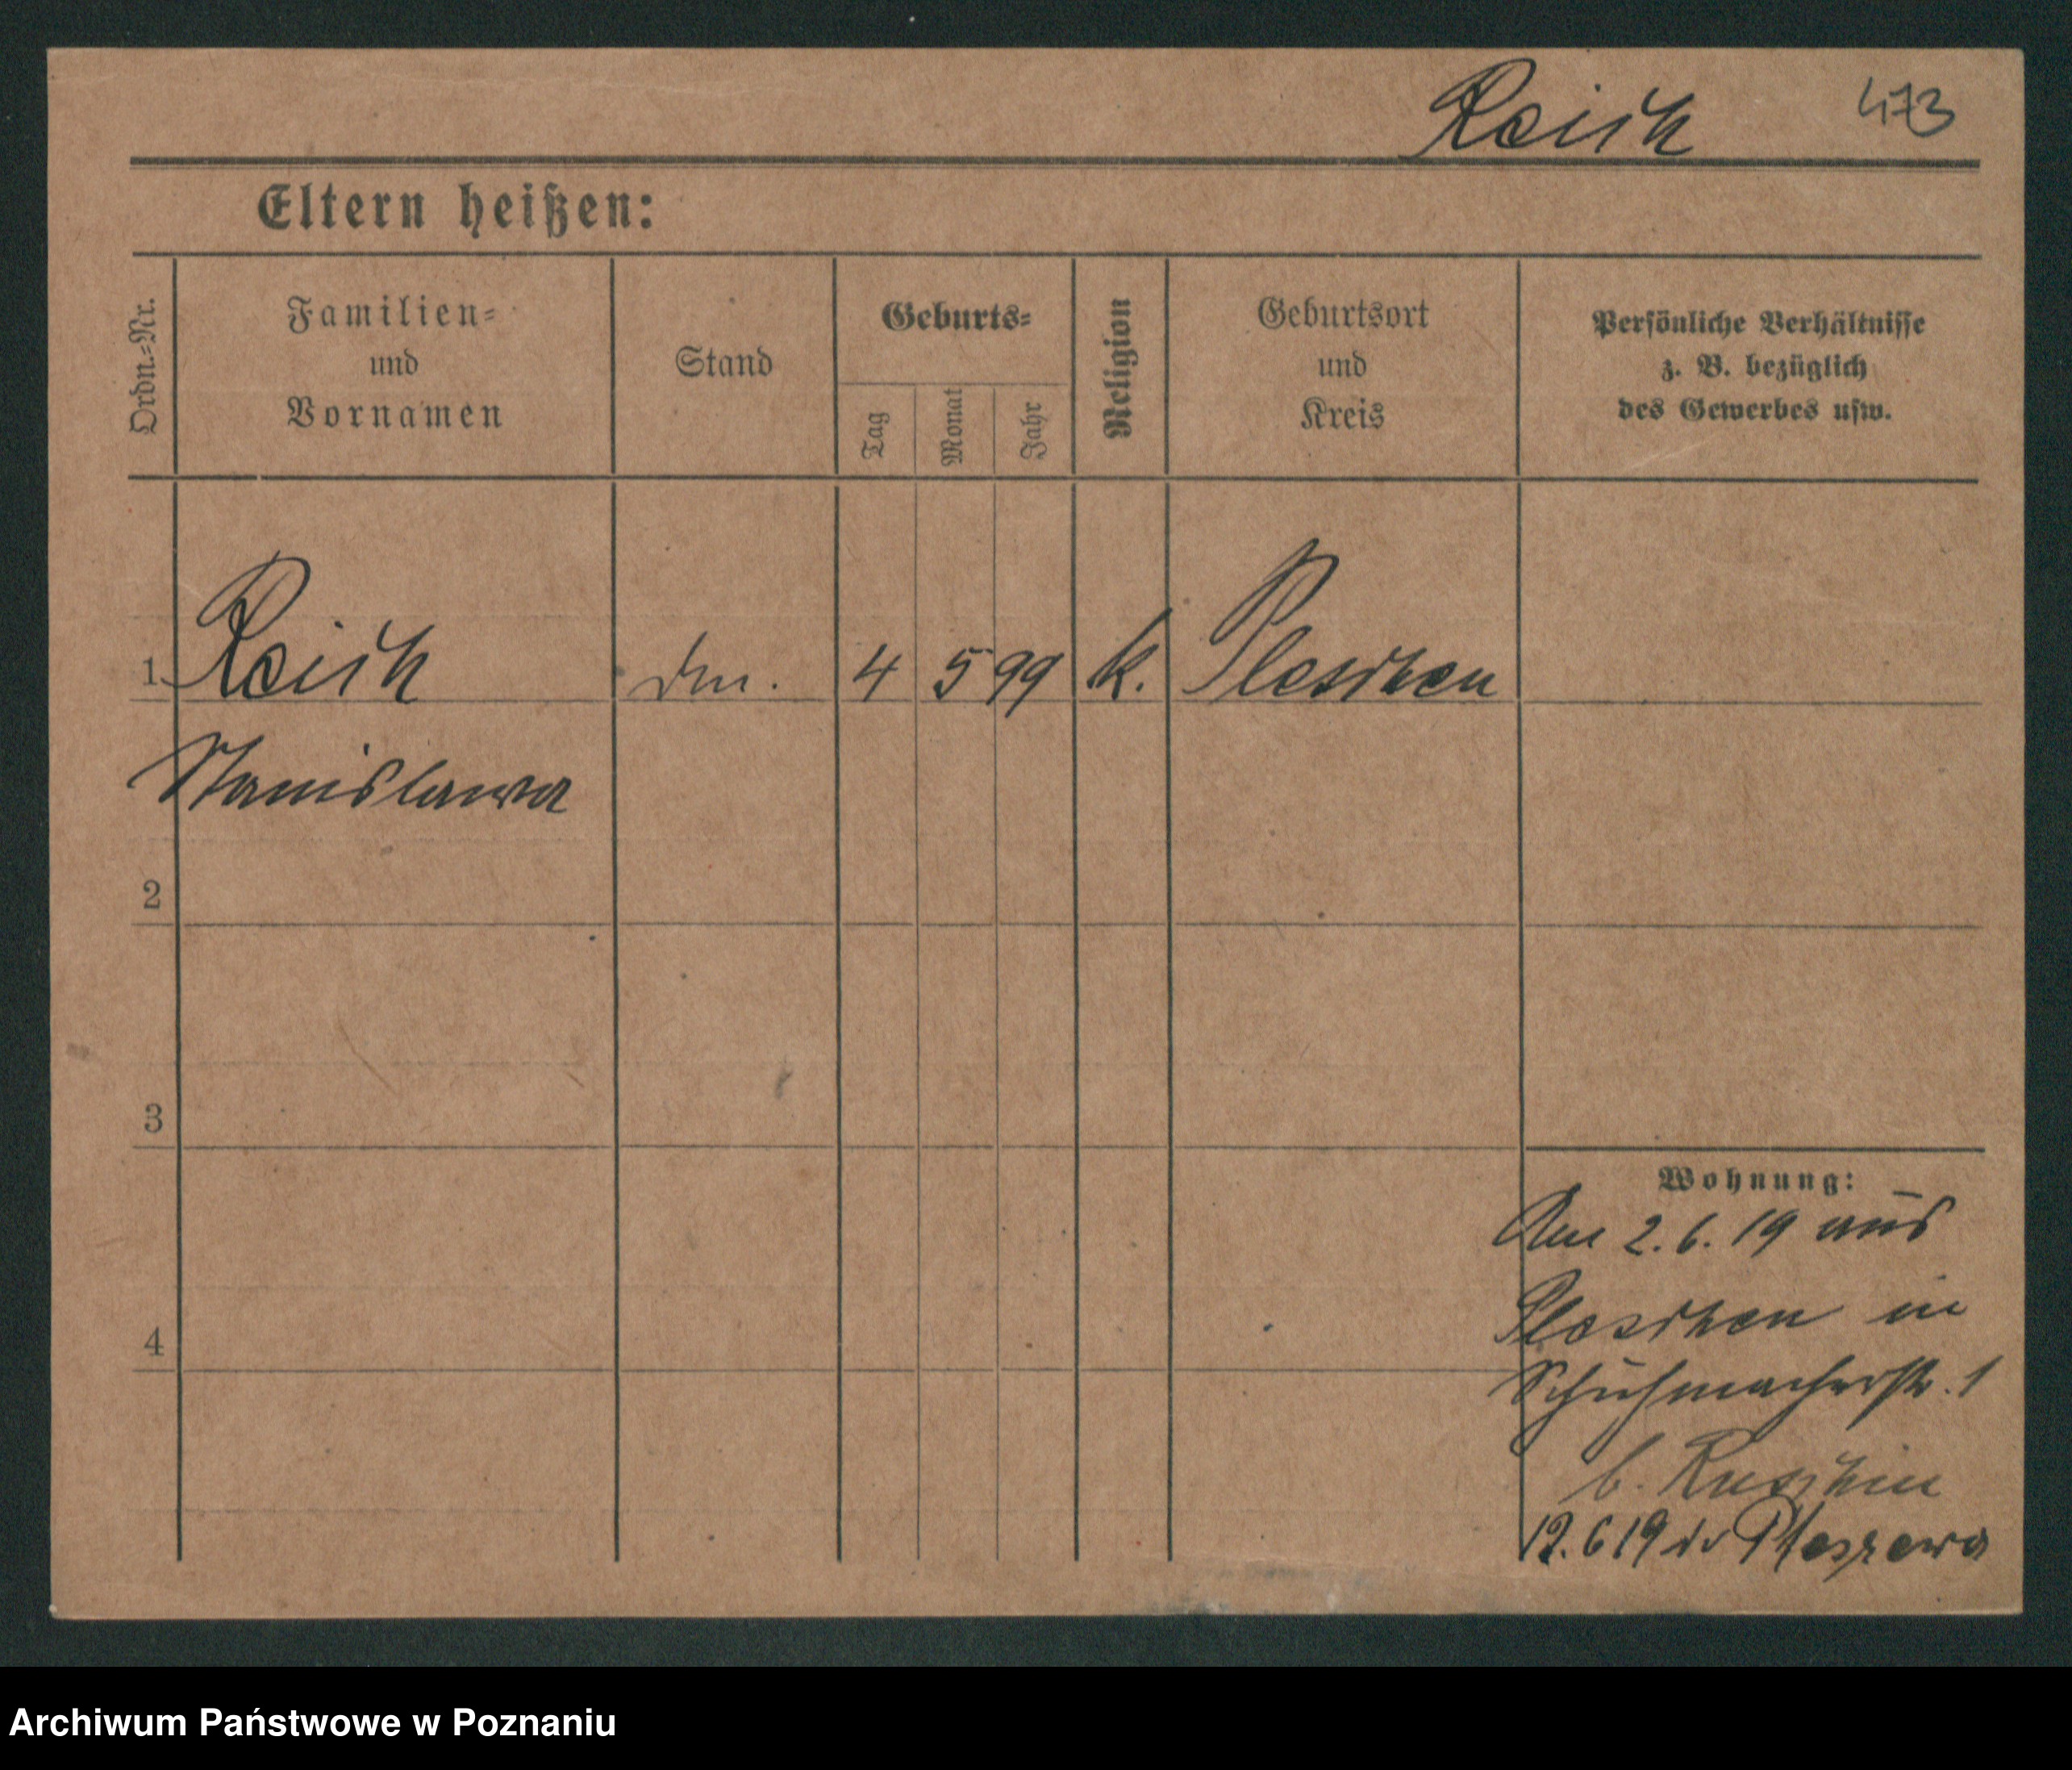 Reich 473
Eltern heißen:
Ordn.-Nr.
Familien-
und
Vornamen
Stand
Geburts-
Tag
Monat
Jahr
Religion
Geburtsort
und
Kreis
Persönliche Verhältnisse
z. B. bezüglich
des Gewerbes usw.
1 Reich 4 5 99 k. Pleschen
Stanislawa
2
3
4
Wohnung:
Am 2.6.19 aus
Pleschen in
Schuhmacherstr. 1
b.
12.6 19 do Pleszewa
Archiwum Państwowe w Poznaniu